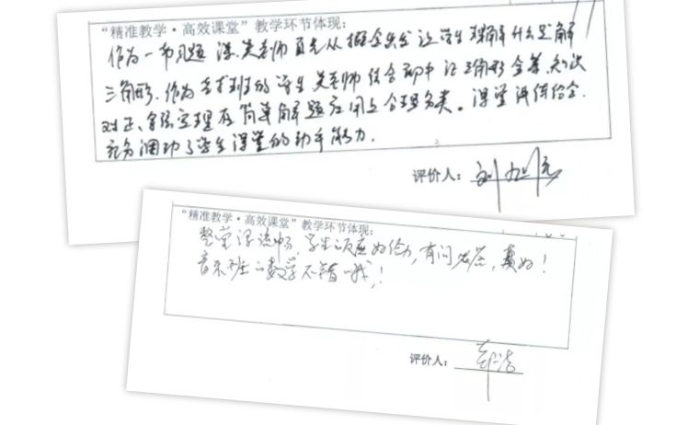 “精准教学·高效课堂”教学环节体现：
作为一节习题课，吴老师首先从概念出发让学生理解什么是解
三角形，作为艺术班的学生吴老师结合初中记三角形全等知识
对正、余弦定理在简单解题应用上合理分类。课堂讲练结合
充分调动了学生课堂的动手能力.
评价人：
“精准教学·高效课堂”教学环节体现：
整堂课流畅，学生反应如给力，有问必答，真好！
音乐班的数学不错哦！
评价人：